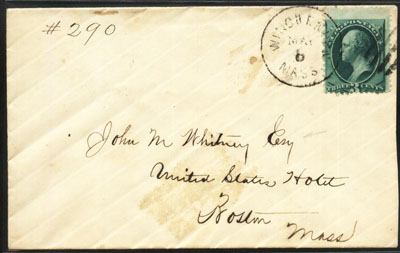 #290
MAY
6
MASS
POSTAGE
THREE CENTS
John M Whitney Esq
United States Hotel
Boston
Mass